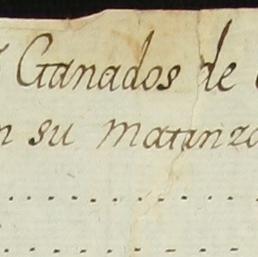 Ganados de
su matanza